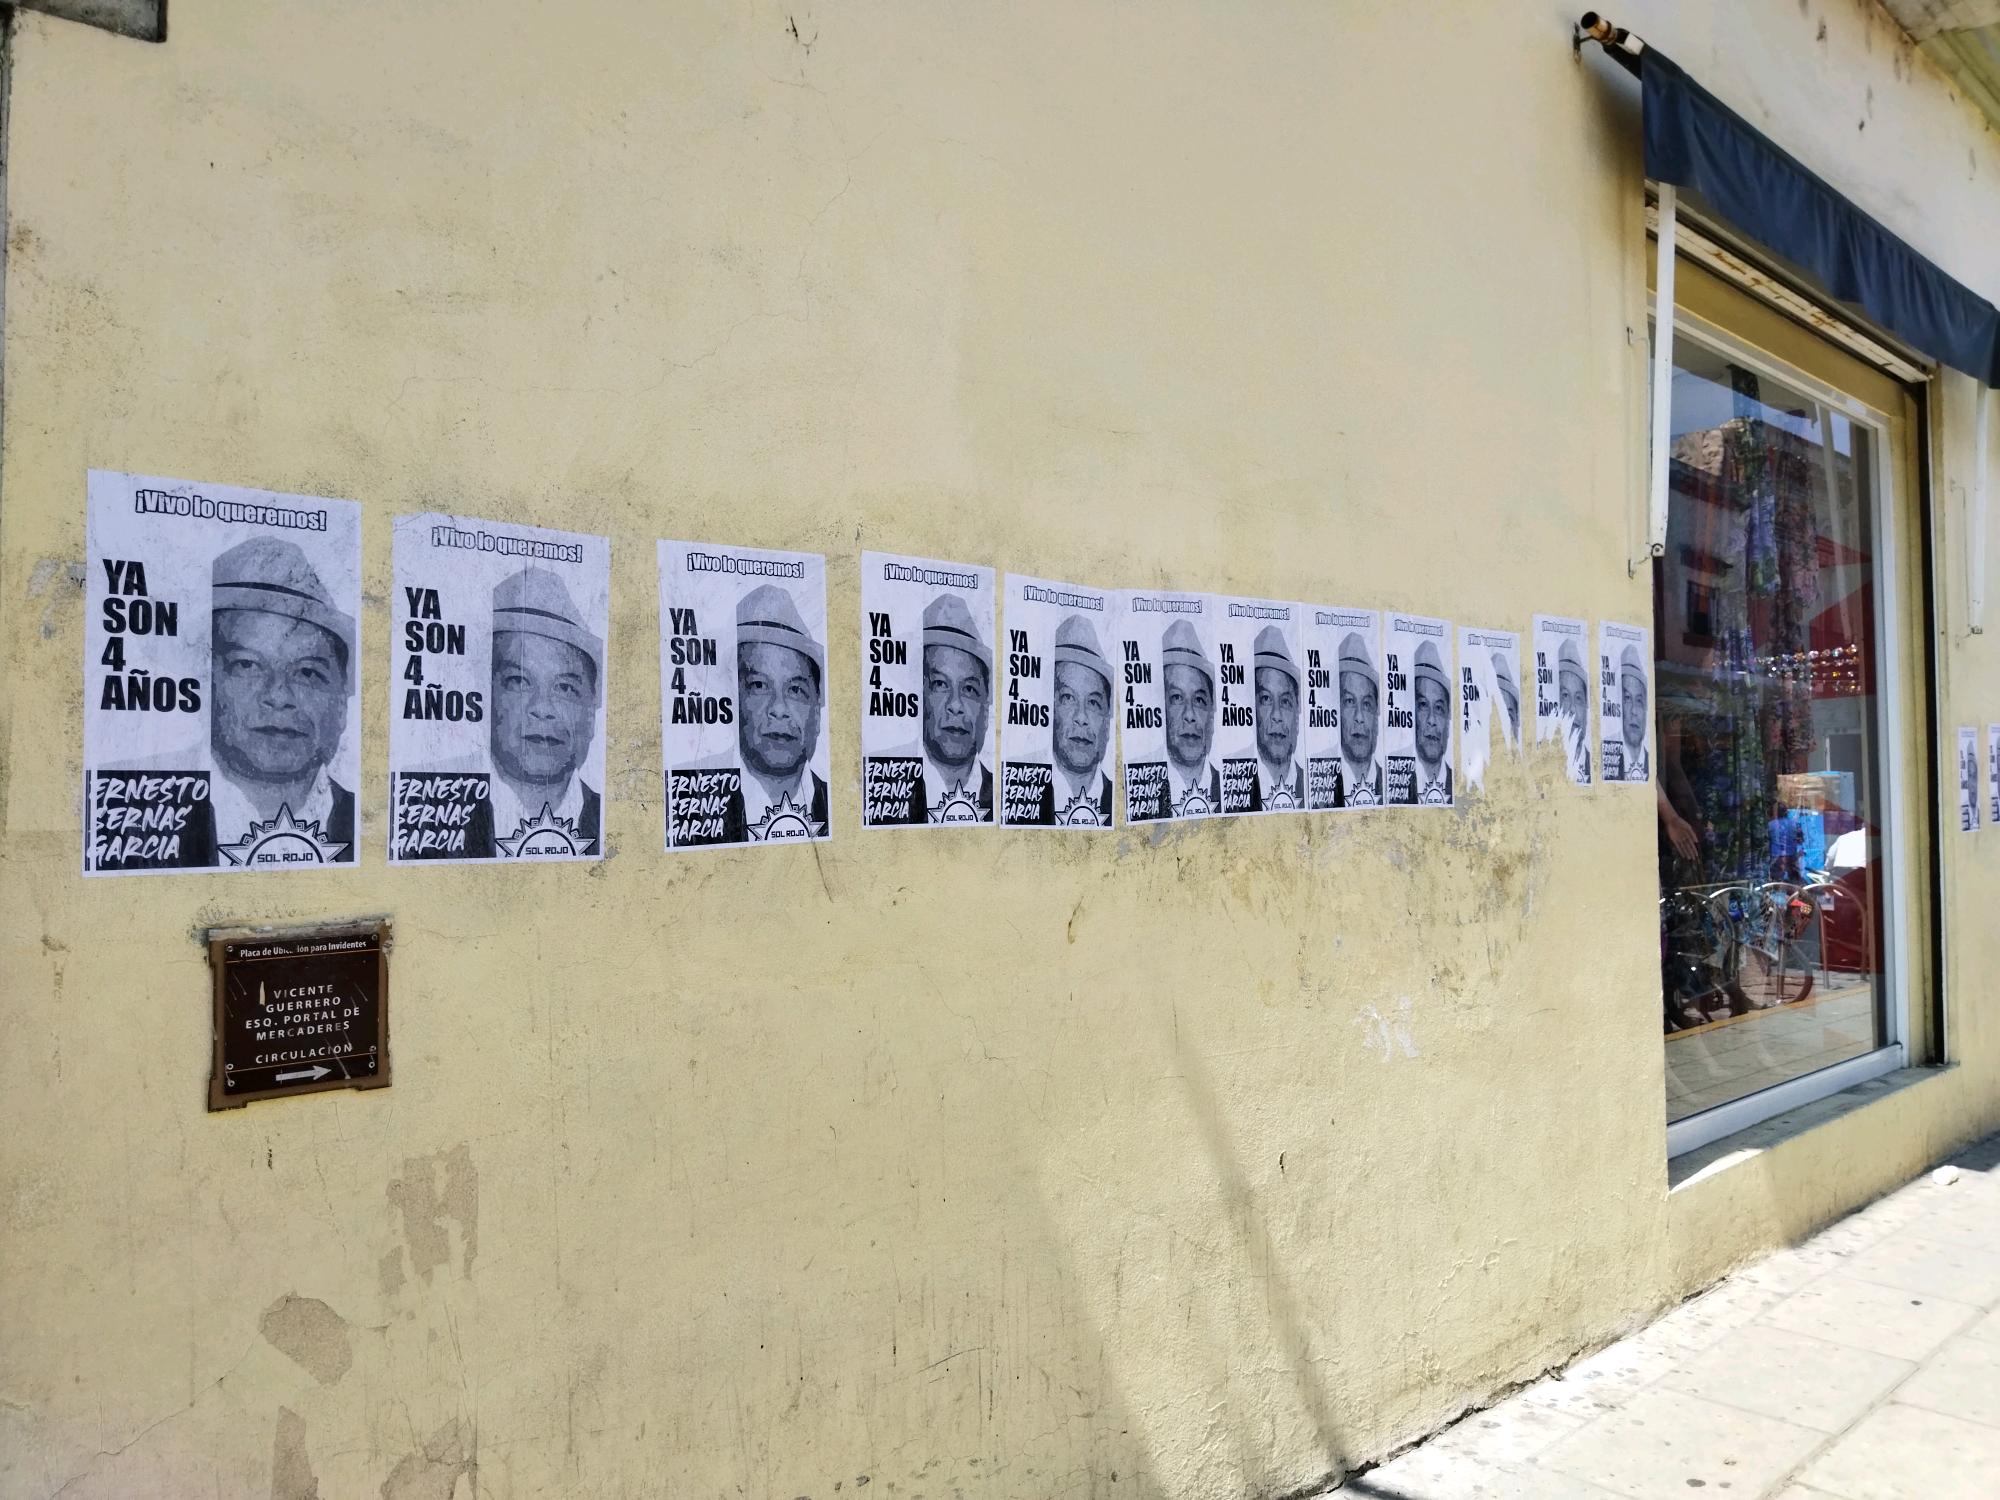 ¡Vivo lo queremos!
YA
SON
4
AÑOS
ERNESTO
SERNAS
GARCIA
SOL ROJO
¡Vivo lo queremos!
YA
SON
4
AÑOS
ERNESTO
SERNAS
GARCIA
SOL ROJO
¡Vivo lo queremos!
YA
SON
4
AÑOS
ERNESTO
SERNAS
GARCIA
SOL ROJO
¡Vivo lo queremos!
YA
SON
4
AÑOS
ERNESTO
SERNAS
GARCIA
SOL ROJO
¡Vivo lo queremos!
YA
SON
4
AÑOS
ERNESTO
SERNAS
GARCIA
SOL ROJO
¡Vivo lo queremos!
YA
SON
4
AÑOS
ERNESTO
SERNAS
GARCIA
SOL ROJO
¡Vivo lo queremos!
YA
SON
4
AÑOS
ERNESTO
SERNAS
GARCIA
SOL ROJO
¡Vivo lo queremos!
YA
SON
4
AÑOS
ERNESTO
SERNAS
GARCIA
SOL ROJO
¡Vivo lo queremos!
YA
SON
4
AÑOS
ERNESTO
SERNAS
GARCIA
SOL ROJO
¡Vivo lo queremos!
YA
SON
4
¡Vivo lo queremos!
YA
SON
4
AÑOS
¡Vivo lo queremos!
YA
SON
4
AÑOS
ERNESTO
SERNAS
GARCIA
Placa de Ubicación para Invidentes
VICENTE
GUERRERO
ESQ. PORTAL DE
MERCADERES
CIRCULACION